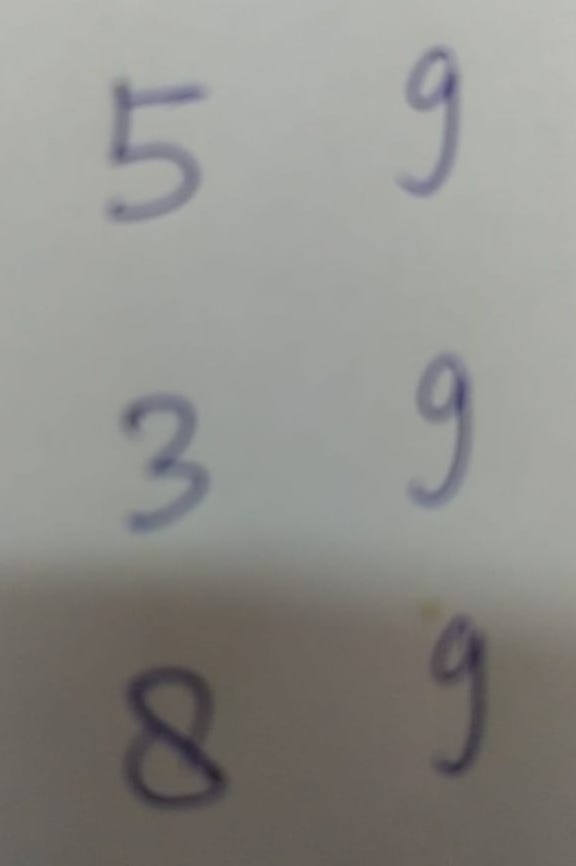 5 9
3 9
8 9